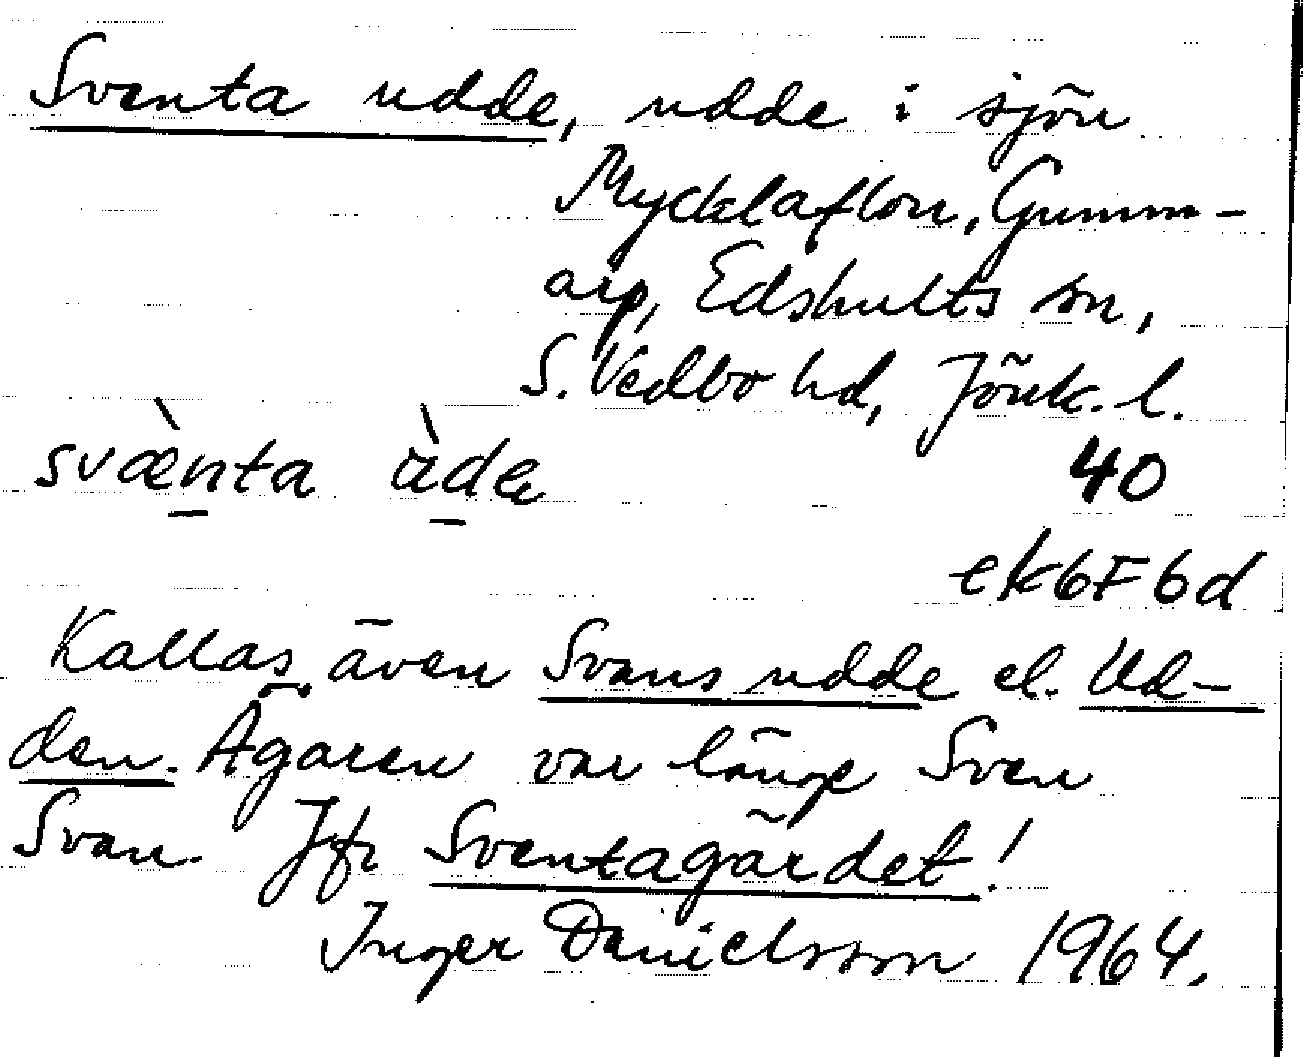 Sventa udde, udde i sjön
Mycklaflon, Gumm-
arp, Edshults sn,
S. Vedbo hd, Jönk. l.
svænta
40
ek 6F 6d
Kallas även Svans udde el. Ud-
den. Ägaren var länge Sven
Svan. Jfr Sventagärdet!
Inger Danielsson 1964.